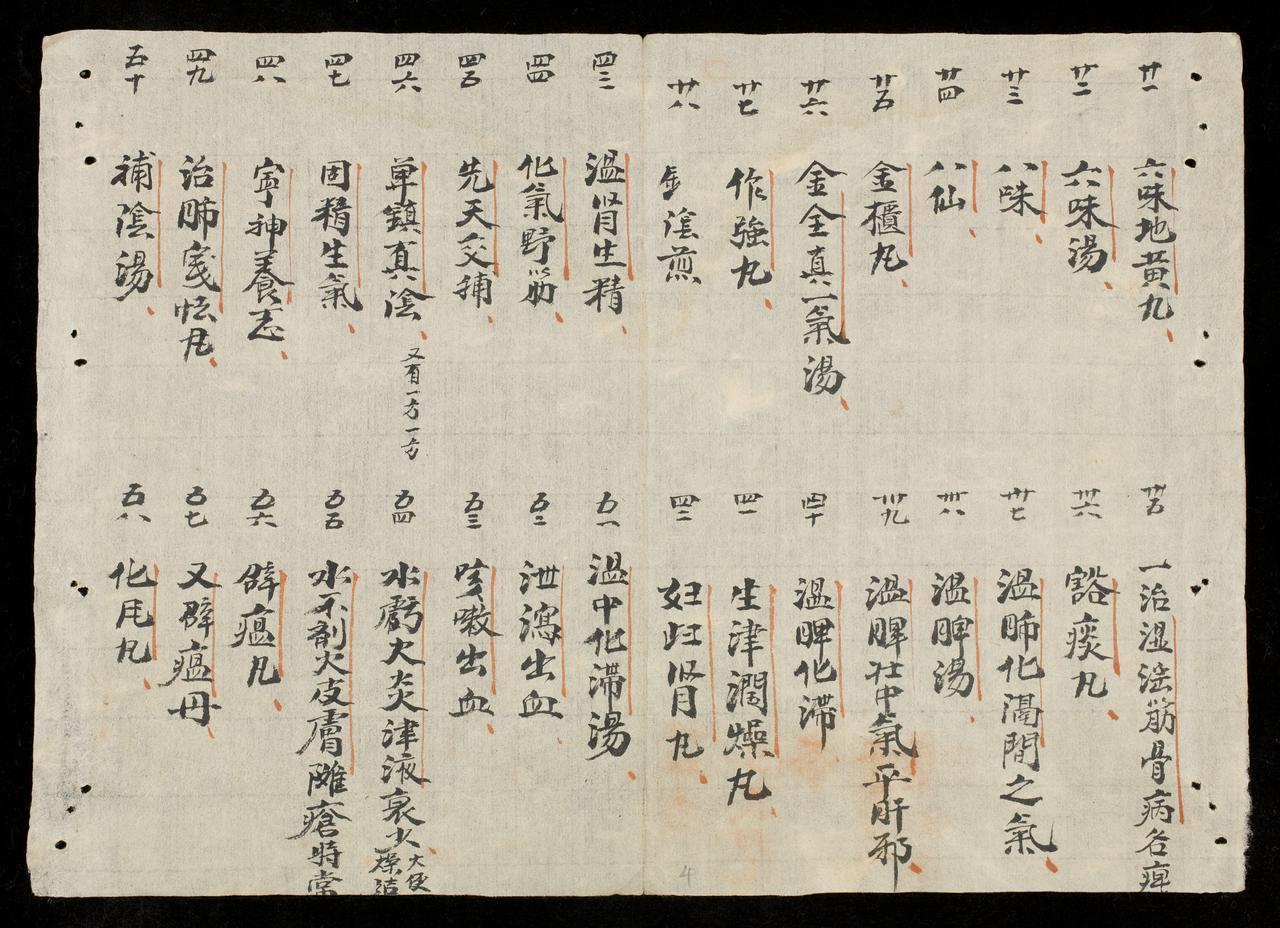 廿一 六味地黄九
廿二 六味湯
廿三 八味
廿四 八仙
廿五 金櫃丸
廿六 金全真一氣湯
廿七 作強丸
廿八 金陰煎
卅五 一治濕滛筋骨病名痺
卅六 豁痰丸
卅七 温肺化膈間之氣
卅八 温脾湯
卅九 温脾壮中氣平肝邪
四十 温脾化滞
四一 生津潤燥丸
四二 妇归肾丸
四三 温肾生精
四四 化氣野筋
四五 先天交補
四六 单鎮真陰 又有一方一方
四七 固精生氣
四八 寧神養志
四九 治肺寔怯丸
五十 補陰湯
五一 温中化滞湯
五二 泄瀉出血
五三 咳嗽出血
五四 水虧火炎津液衰少 大便燥結
五五 水不制火皮膚瘡時常
五六 辟瘟丸
五七 又辟瘟丹
五八 化丸